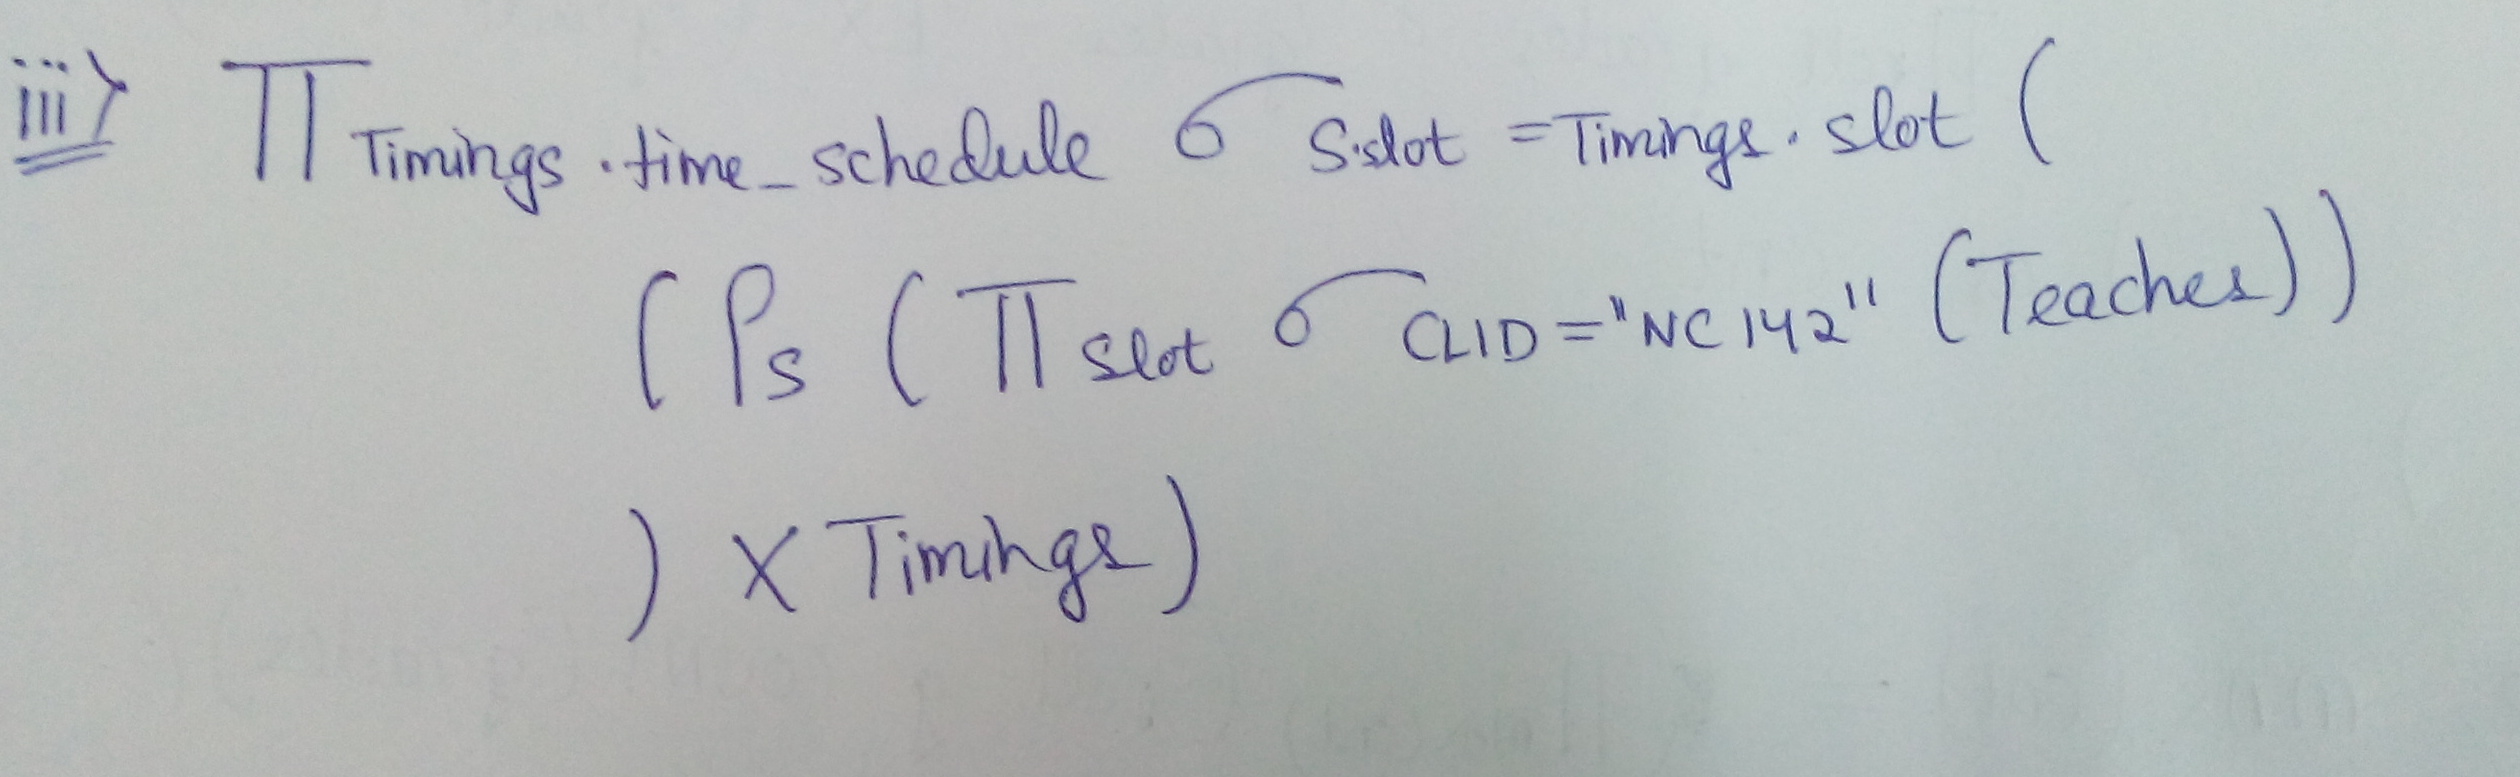 iii) Π Timings.time_schedule σ S.slot = Timings.slot (
( ρs ( Π slot σ CLID = "NC142" (Teaches))
) X Timings)